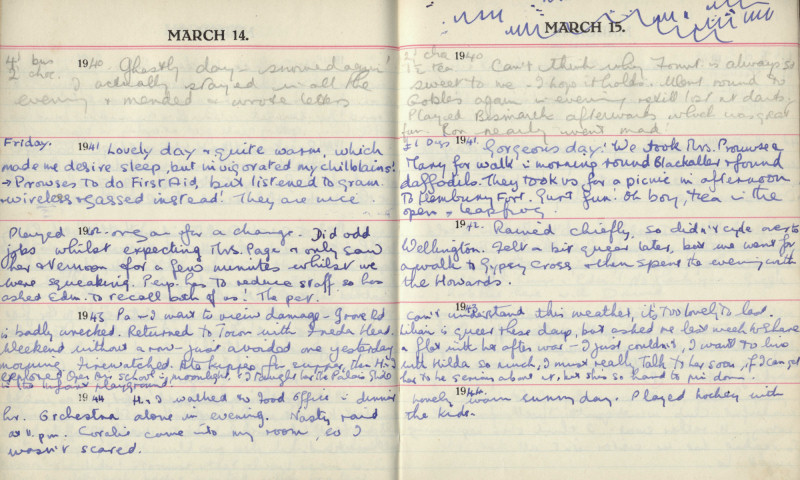 MARCH 14.
4d bus 1940. Ghastly day - snowed again!
2d choc. I actually stayed in all the
evening & mended & wrote letters
Friday. 1941 Lovely day & quite warm, which
made me desire sleep, but invigorated my chilblains!
→ Prowses to do First Aid, but listened to gram
& wireless & gassed instead! They are nice.
Played 1942. organ for a change. Did odd
jobs whilst expecting Mrs. Page & only saw
her afternoon for a few minutes whilst we
were squeaking. Perp. has to reduce staff so has
asked Edm. to recall both of us! The pet.
1943 Pa & I went to view damage - Grove Rd
is badly wrecked. Returned to Town with Freda Head.
Weekend without a row - just avoided one yesterday
morning. Firewatched. Ate kippers for supper, then H & I
explored Open Air School by moonlight & I
is the Infant playground!
1944 H & I walked to Food Office in dinner
hr. Orchestra alone in evening. Nasty raid
at 11.pm. came into my room, so I
wasn't scared.
MARCH 15.
1940
1½ tea. Can't think why is always so
sweet to me - I hope it holds. Went round to
again in evening & still lost at darts.
Played Bismark afterwards which was great
fun. Ron nearly went mad!
1941. Gorgeous day! We took Mrs. Prowse &
Mary for walk in morning round Blackaller & found
daffodils. They took us for a picnic in afternoon
to Hembury Fort. Great fun. Oh boy, tea in the
open & leapfrog.
1942. Rained chiefly, so didn't cycle over to
Wellington. Felt a bit queer later, but we went for
a walk to Gypsy Cross & then spent the evening with
the Howards.
1943
Can't understand this weather, it's too lovely to last.
Lilian is queer these days, but asked me last week to share
a flat with her after war - I just couldn't, I want to live
with Hilda so much, I must really talk to her soon, if I can get
her to be serious about it, but she's so hard to pin down.
1944.
Lovely, warm sunny day. Played hockey with
the kids.